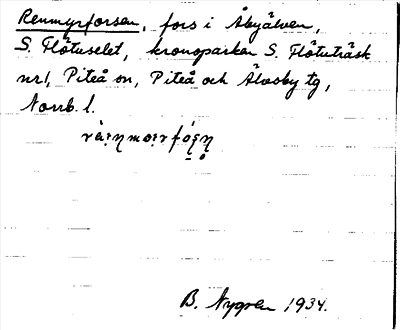 Renmyrforsen, fors i Åbyälven,
S. Flötuselet, kronoparken S. Flötuträsk
nr 1, Piteå sn, Piteå och Älvsby tg,
Norrb. l.
B. Nygren 1934.